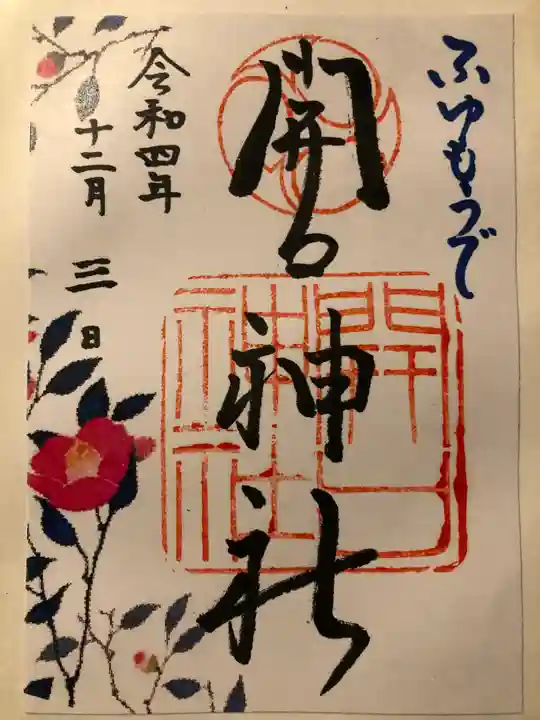 ふゆもうで
開口神社
開口神社
令和四年
十二月 三日